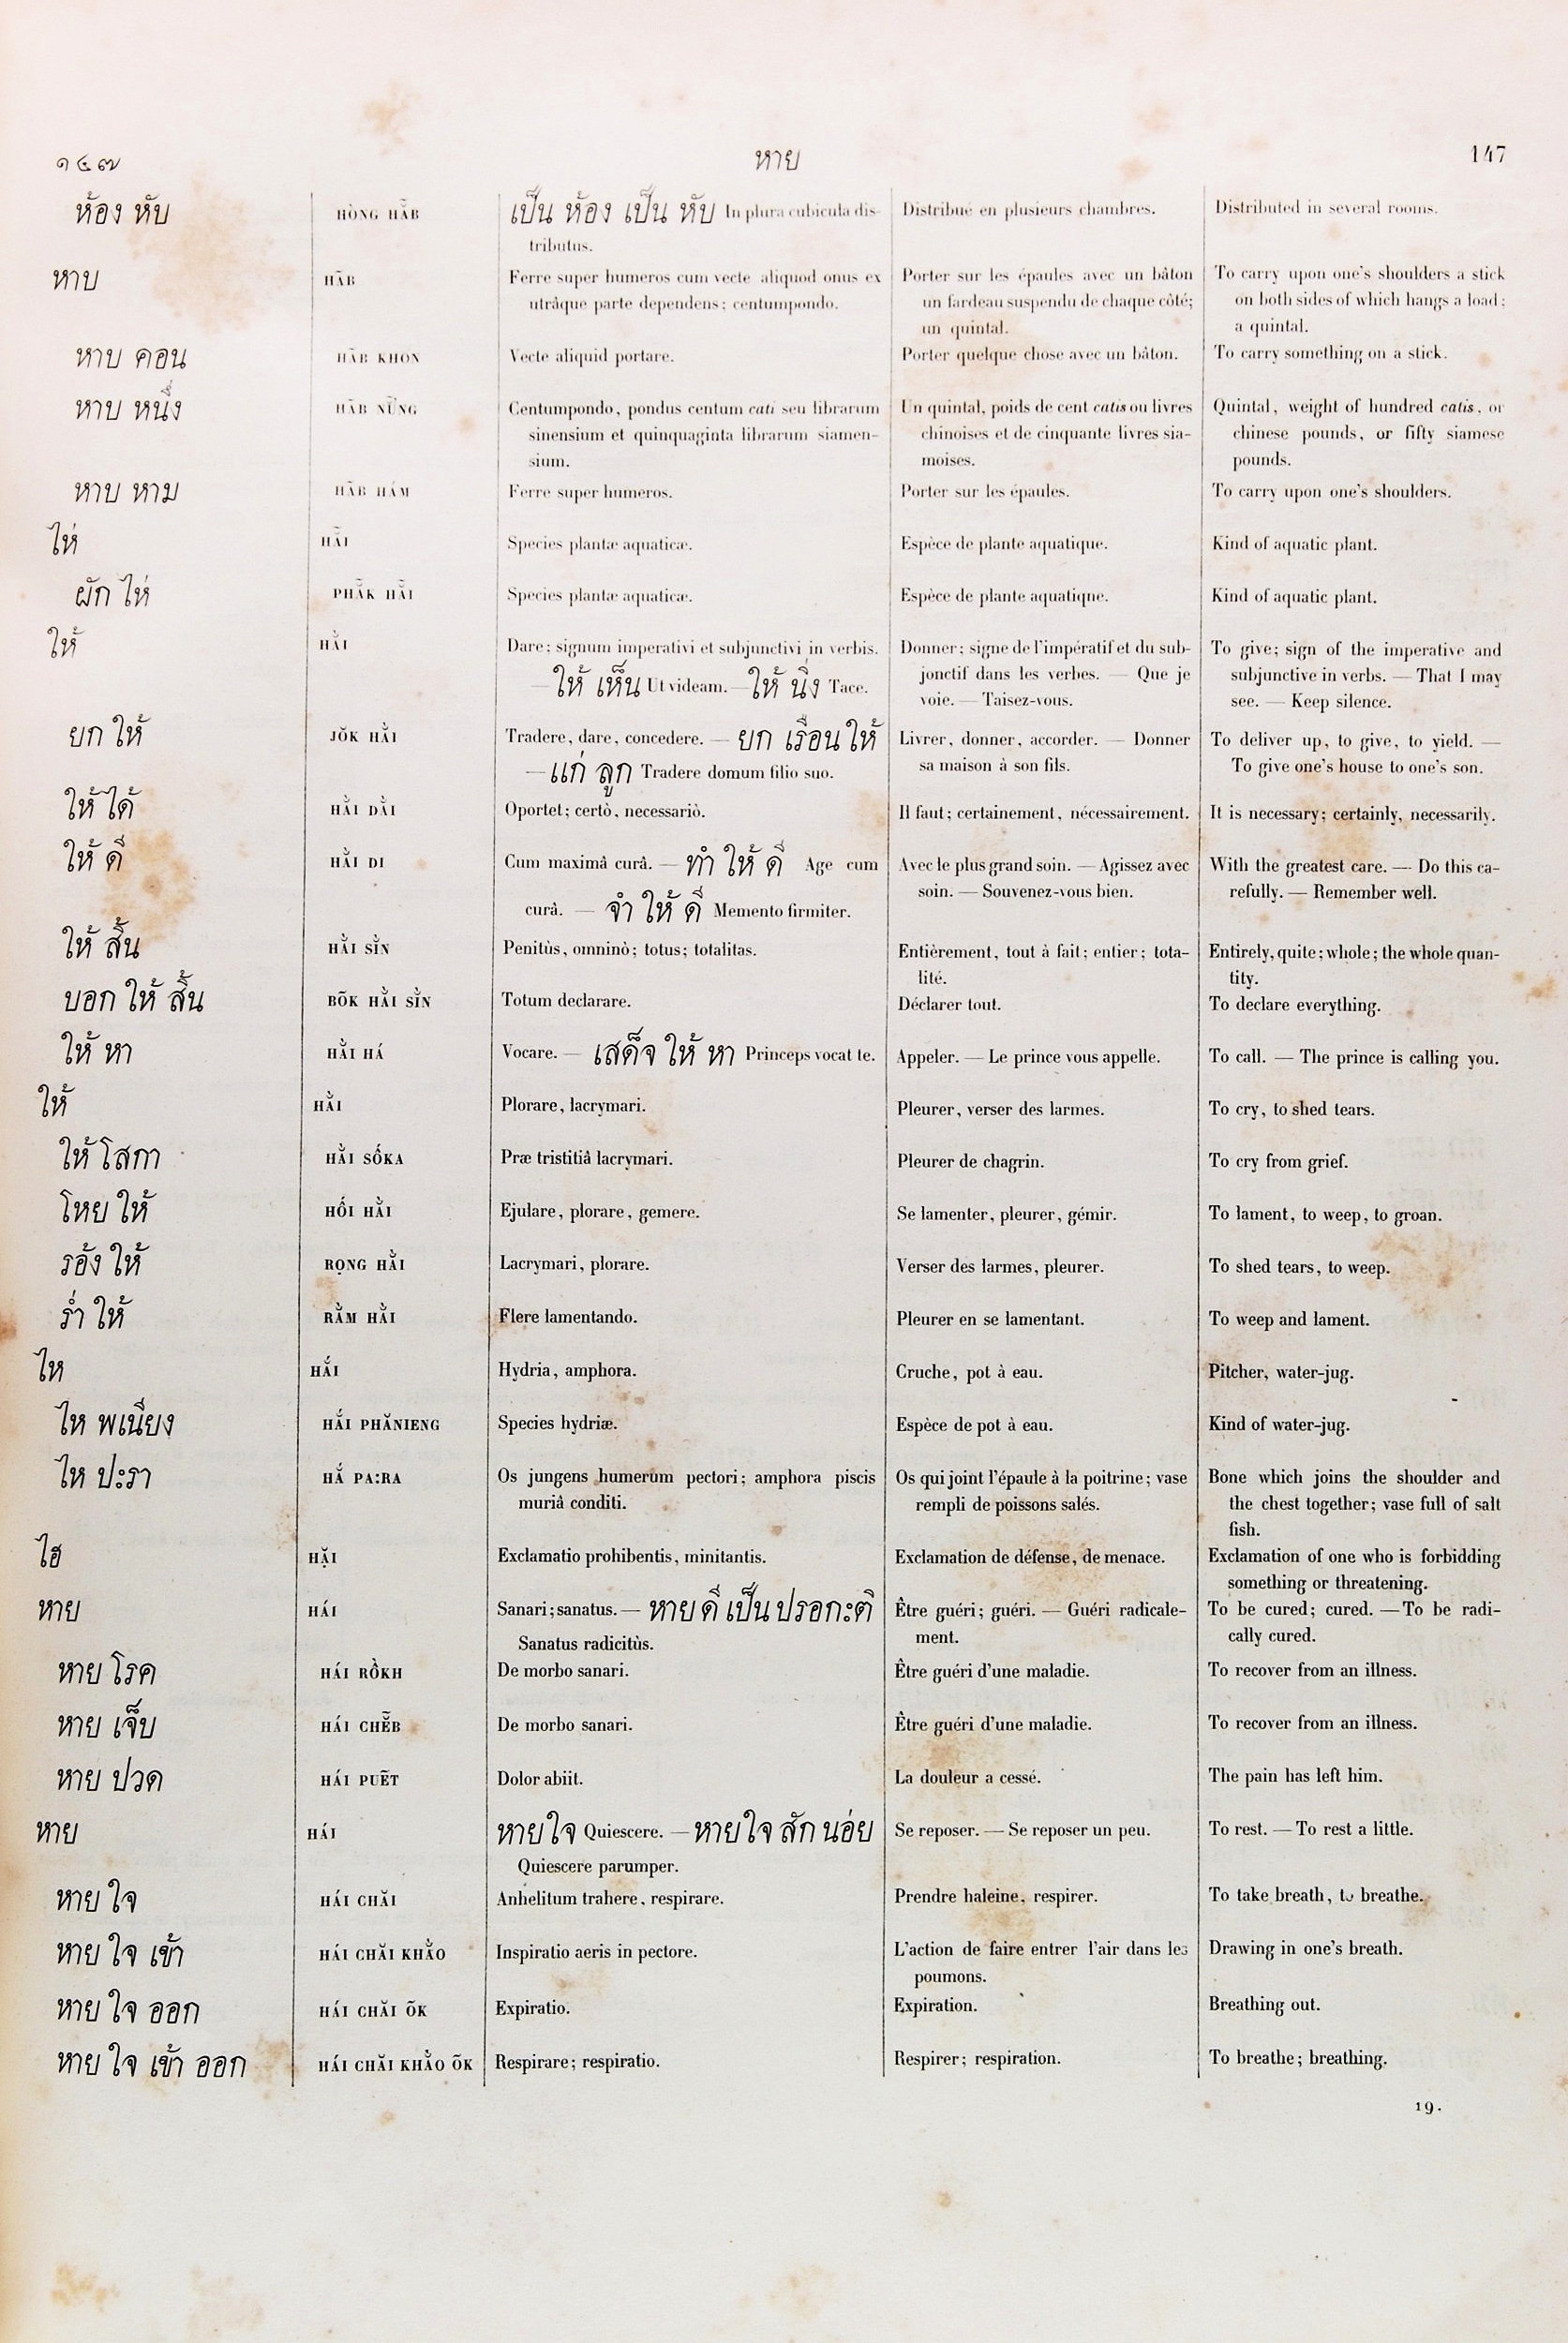 ๑๔๗ หาย 147
ห้อง หับ HÒNG HẴB เป็น ห้อง เป็น หับ In plura cubicula dis- Distribué en plusieurs chambres. Distributed in several rooms.
tributus.
หาบ HÃB Ferre super humeros cum vecte aliquod onus ex Porter sur les épaules avec un bâton To carry upon one's shoulders a stick
utrâque parte dependens; centumpondo. un fardeau suspendu de chaque côté; on both sides of which hangs a load;
un quintal. a quintal.
หาบ คอน HÃB KHON Vecte aliquid portare. Porter quelque chose avec un bâton. To carry something on a stick.
หาบ หนึ่ง HÃB NỮNG Centumpondo, pondus centum cati seu librarum Un quintal, poids de cent catis ou livres Quintal, weight of hundred catis, or
sinensium et quinquaginta librarum siamen- chinoises et de cinquante livres sia- chinese pounds, or fifty siamese
sium. moises. pounds.
หาบ หาม HÃB HÁM Ferre super humeros. Porter sur les épaules. To carry upon one's shoulders.
ไห่ HẴI Species plantæ aquaticæ. Espèce de plante aquatique. Kind of aquatic plant.
ผัก ไห่ PHẴK HẴI Species plantæ aquaticæ. Espèce de plante aquatique. Kind of aquatic plant.
ให้ HẰI Dare; signum imperativi et subjunctivi in verbis. Donner; signe de l'impératif et du sub- To give; sign of the imperative and
— ให้ เห็น Ut videam. — ให้ นิ่ง Tace. jonctif dans les verbes. — Que je subjunctive in verbs. — That I may
voie. — Taisez-vous. see. — Keep silence.
ยก ให้ JŎK HẰI Tradere, dare, concedere. — ยก เรือน ให้ Livrer, donner, accorder. — Donner To deliver up, to give, to yield. —
— แก่ ลูก Tradere domum filio suo. sa maison à son fils. To give one's house to one's son.
ให้ ได้ HẰI DẰI Oportet; certò, necessariò. Il faut; certainement, nécessairement. It is necessary; certainly, necessarily.
ให้ ดี HẰI DI Cum maximâ curâ. — ทำ ให้ ดี Age cum Avec le plus grand soin. — Agissez avec With the greatest care. — Do this ca-
curâ. — จำ ให้ ดี Memento firmiter. soin. — Souvenez-vous bien. refully. — Remember well.
ให้ สิ้น HẰI SĪ̀N Penitùs, omninò; totus; totalitas. Entièrement, tout à fait; entier; tota- Entirely, quite; whole; the whole quan-
lité. tity.
บอก ให้ สิ้น BÕK HẰI SĪ̀N Totum declarare. Déclarer tout. To declare everything.
ให้ หา HẰI HÁ Vocare. — เสด็จ ให้ หา Princeps vocat te. Appeler. — Le prince vous appelle. To call. — The prince is calling you.
ให้ HẰI Plorare, lacrymari. Pleurer, verser des larmes. To cry, to shed tears.
ให้ โสกา HẰI SỐKA Præ tristitiâ lacrymari. Pleurer de chagrin. To cry from grief.
โหย ให้ HỐI HẰI Ejulare, plorare, gemere. Se lamenter, pleurer, gémir. To lament, to weep, to groan.
รอ้ง ให้ RỌNG HẰI Lacrymari, plorare. Verser des larmes, pleurer. To shed tears, to weep.
ร่ำ ให้ RẰM HẰI Flere lamentando. Pleurer en se lamentant. To weep and lament.
ไห HẮI Hydria, amphora. Cruche, pot à eau. Pitcher, water-jug.
ไห พเนียง HẮI PHĂNIENG Species hydriæ. Espèce de pot à eau. Kind of water-jug.
ไห ปะรา HẮ PA:RA Os jungens humerum pectori; amphora piscis Os qui joint l'épaule à la poitrine; vase Bone which joins the shoulder and
muriâ conditi. rempli de poissons salés. the chest together; vase full of salt
fish.
ไฮ HẶI Exclamatio prohibentis, minitantis. Exclamation de défense, de menace. Exclamation of one who is forbidding
something or threatening.
หาย HÁI Sanari; sanatus. — หาย ดี เป็น ปรอกะติ Être guéri; guéri. — Guéri radicale- To be cured; cured. — To be radi-
Sanatus radicitùs. ment. cally cured.
หาย โรค HÁI RỒKH De morbo sanari. Être guéri d'une maladie. To recover from an illness.
หาย เจ็บ HÁI CHẼ̆B De morbo sanari. Être guéri d'une maladie. To recover from an illness.
หาย ปวด HÁI PUẼT Dolor abiit. La douleur a cessé. The pain has left him.
หาย HÁI หาย ใจ Quiescere. — หาย ใจ สัก นอ่ย Se reposer. — Se reposer un peu. To rest. — To rest a little.
Quiescere parumper.
หาย ใจ HÁI CHĂI Anhelitum trahere, respirare. Prendre haleine, respirer. To take breath, to breathe.
หาย ใจ เข้า HÁI CHĂI KHẰO Inspiratio aeris in pectore. L'action de faire entrer l'air dans les Drawing in one's breath.
poumons.
หาย ใจ ออก HÁI CHĂI ÕK Expiratio. Expiration. Breathing out.
หาย ใจ เข้า ออก HÁI CHĂI KHẰO ÕK Respirare; respiratio. Respirer; respiration. To breathe; breathing.
19.